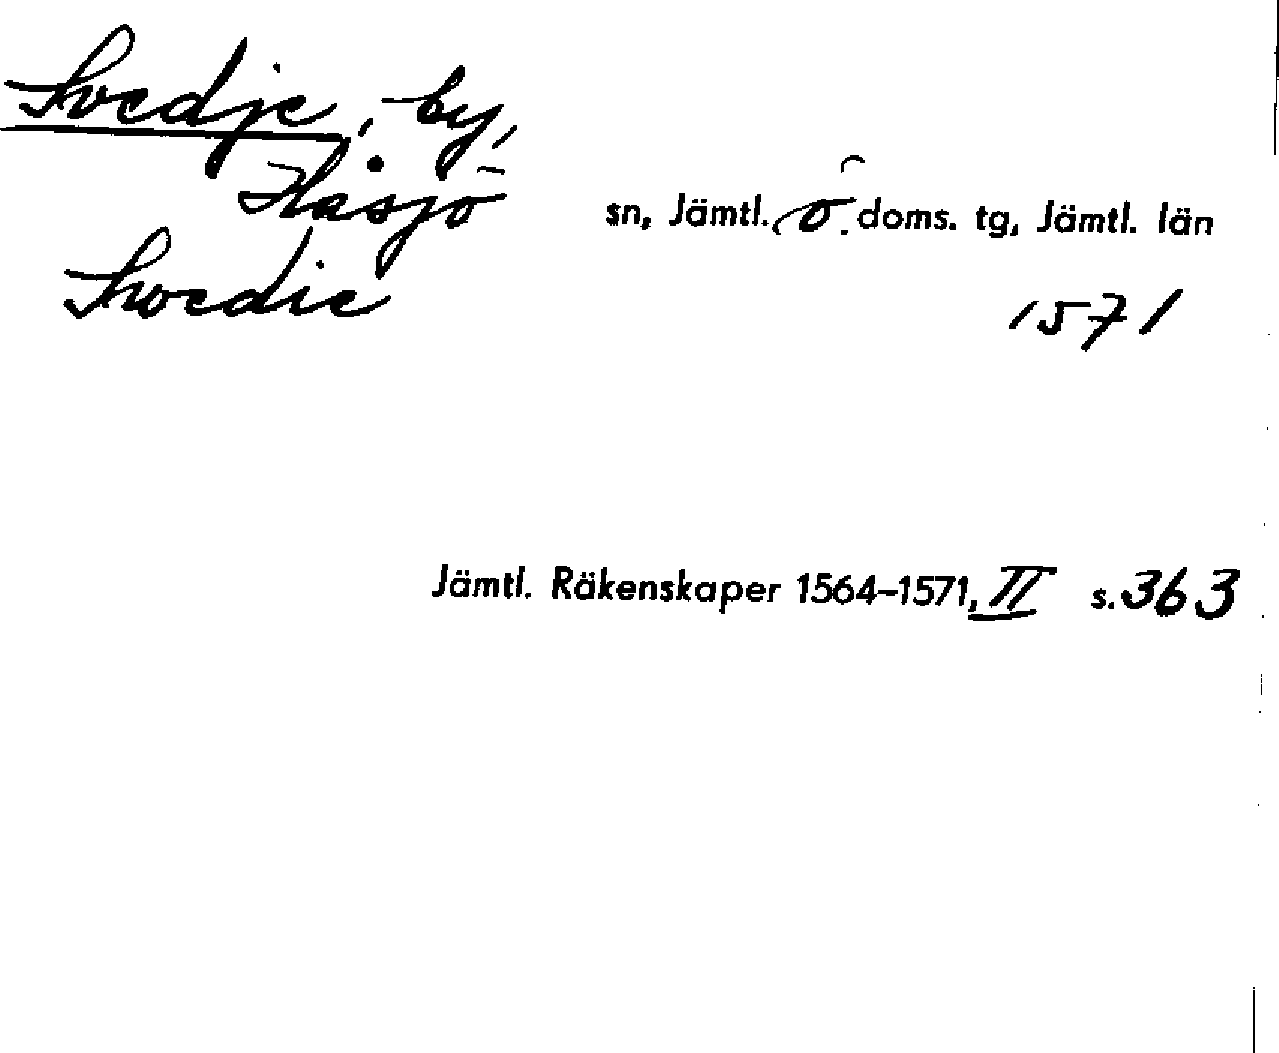 Svedje, by,
Håsjö sn, Jämtl. ö. doms. tg, Jämtl. län
Swedie 1571
Jämtl. Räkenskaper 1564–1571, II s. 363